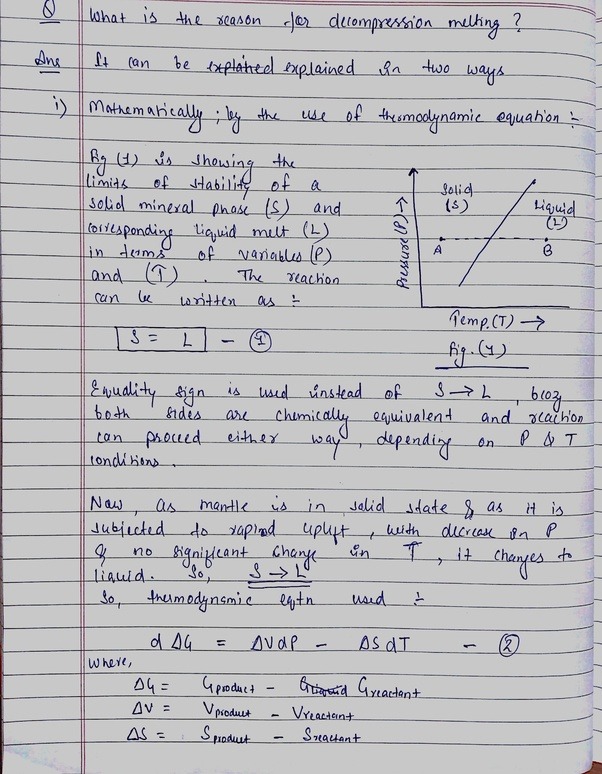 Q What is the reason for decompression melting?
Ans It can be explained explained in two ways
i) Mathematically; by the use of thermodynamic equation :-
Fig (1) is showing the
limits of stability of a
solid mineral phase (S) and
corresponding liquid melt (L)
in terms of variables (P)
and (T). The reaction
can be written as :-
S = L - ①
Pressure (P) →
Solid
(S)
Liquid
(L)
A
B
Temp.(T) →
Fig. (1)
Equality sign is used instead of S → L, bcoz
both sides are chemically equivalent and reaction
can proceed either way, depending on P & T
conditions.
Now, as mantle is in solid state & as it is
subjected to rapid uplift, with decrease in P
& no significant change in T, it changes to
liquid. So, S → L
So, thermodynamic eqtn used :-
d ΔG = ΔVdP - ΔSdT - ②
Where,
ΔG = Gproduct - Gliquid Greactant
ΔV = Vproduct - Vreactant
ΔS = Sproduct - Sreactant